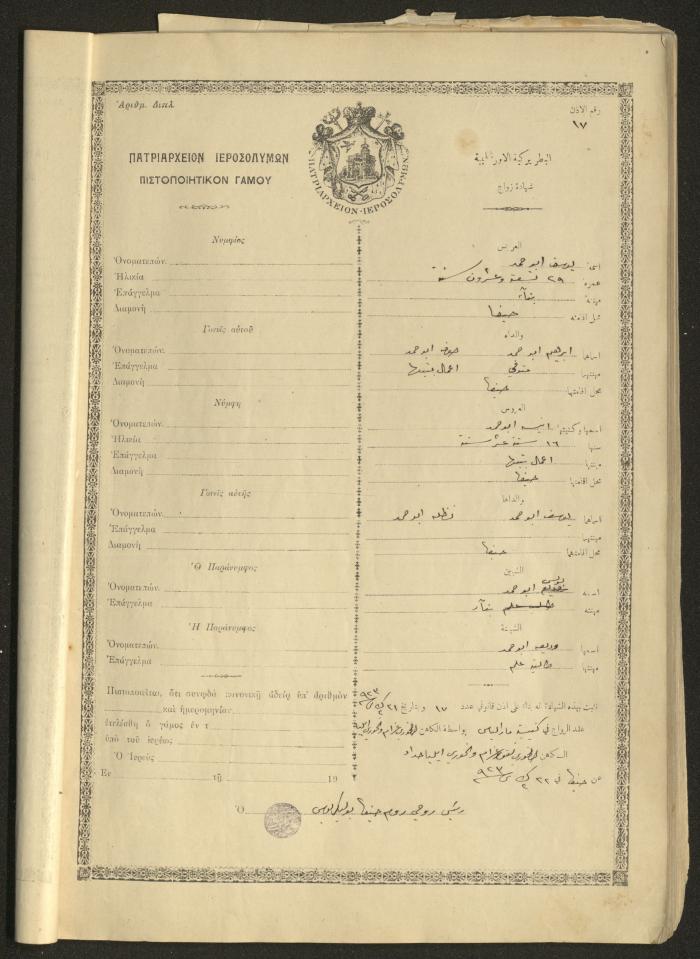 Ἀριθμ. Διπλ
ΠΑΤΡΙΑΡΧΕΙΟΝ ΙΕΡΟΣΟΛΥΜΩΝ
ΠΙΣΤΟΠΟΙΗΤΙΚΟΝ ΓΑΜΟΥ
ΠΑΤΡΙΑΡΧΕΙΟΝ·ΙΕΡΟΣΟΛΥΜΩΝ
رقم الاذن
١٧
البطريركية
شهادة زواج
Νυμφίος
Ὀνοματεπών.
Ἡλικία
Ἐπάγγελμα
Διαμονὴ
Γονεῖς αὐτοῦ
Ὀνοματεπών.
Ἐπάγγελμα
Διαμονὴ
Νύμφη
Ὀνοματεπών.
Ἡλικία
Ἐπάγγελμα
Διαμονὴ
Γονεῖς αὐτῆς
Ὀνοματεπών.
Ἐπάγγελμα
Διαμονὴ
Ὁ Παράνυμφος
Ὀνοματεπών.
Ἐπάγγελμα
Ἡ Παράνυμφος
Ὀνοματεπών.
Ἐπάγγελμα
Πιστοποιεῖται, ὅτι συνῳδὰ κανονικῇ ἀδείᾳ ὑπ' ἀριθμὸν
καὶ ἡμερομηνίαν
ἐτελέσθη ὁ γάμος ἐν τ
ὑπὸ τοῦ ἱερέως
Ὁ Ἱερεὺς
Ἐν τῇ 19
Ὁ
العريس
اسمه يوسف ابو حمد
عمره ٢٩ تسعة وعشرون سنة
مهنته بناء
محل اقامته حيفا
والداه
اسماهما ابراهيم ابو حمد ابو حمد
مهنتهما متوفي اعمال بيتها
محل اقامتهما حيفا
العروس
اسمها وكنيتها ابو حمد
سنها ١٦ ستة عشر سنة
مهنتها اعمال بيتها
محل اقامتها حيفا
والداها
اسماهما يوسف ابو حمد نظله ابو حمد
مهنتهما
محل اقامتهما حيفا
الشبين
اسمه ابو حمد
مهنته بناء
الشبينة
اسمها وديعه ابو حمد
مهنتها طالبة علم
ثابت بهذه الشهادة انه بناء على اذن قانوني عدد ١٧ و بتاريخ ٢١ ك٢ سنة ٩٢٣
عقد الزواج في كنيسة مار الياس بواسطة الكاهن
الكاهن والخوري ايليا حداد
عن حيفا في ٢٢ ك٢ سنة ٩٢٣
رئيس روحي روم حيفا